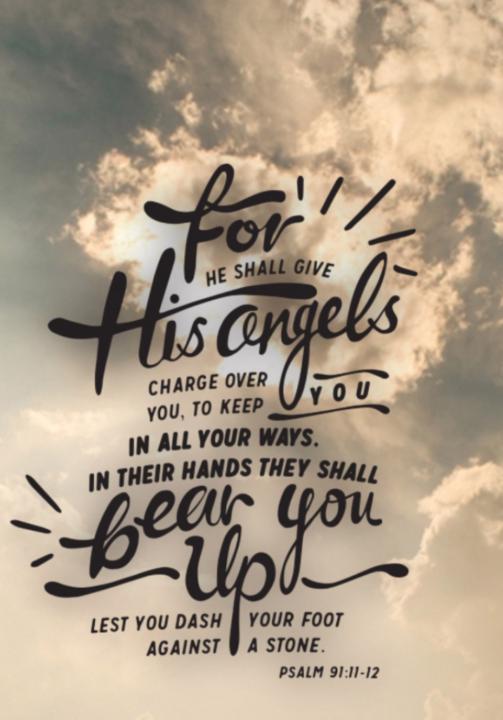 For
HE SHALL GIVE
His angels
CHARGE OVER
YOU, TO KEEP YOU
IN ALL YOUR WAYS.
IN THEIR HANDS THEY SHALL
bear you
Up
LEST YOU DASH YOUR FOOT
AGAINST A STONE.
PSALM 91:11-12